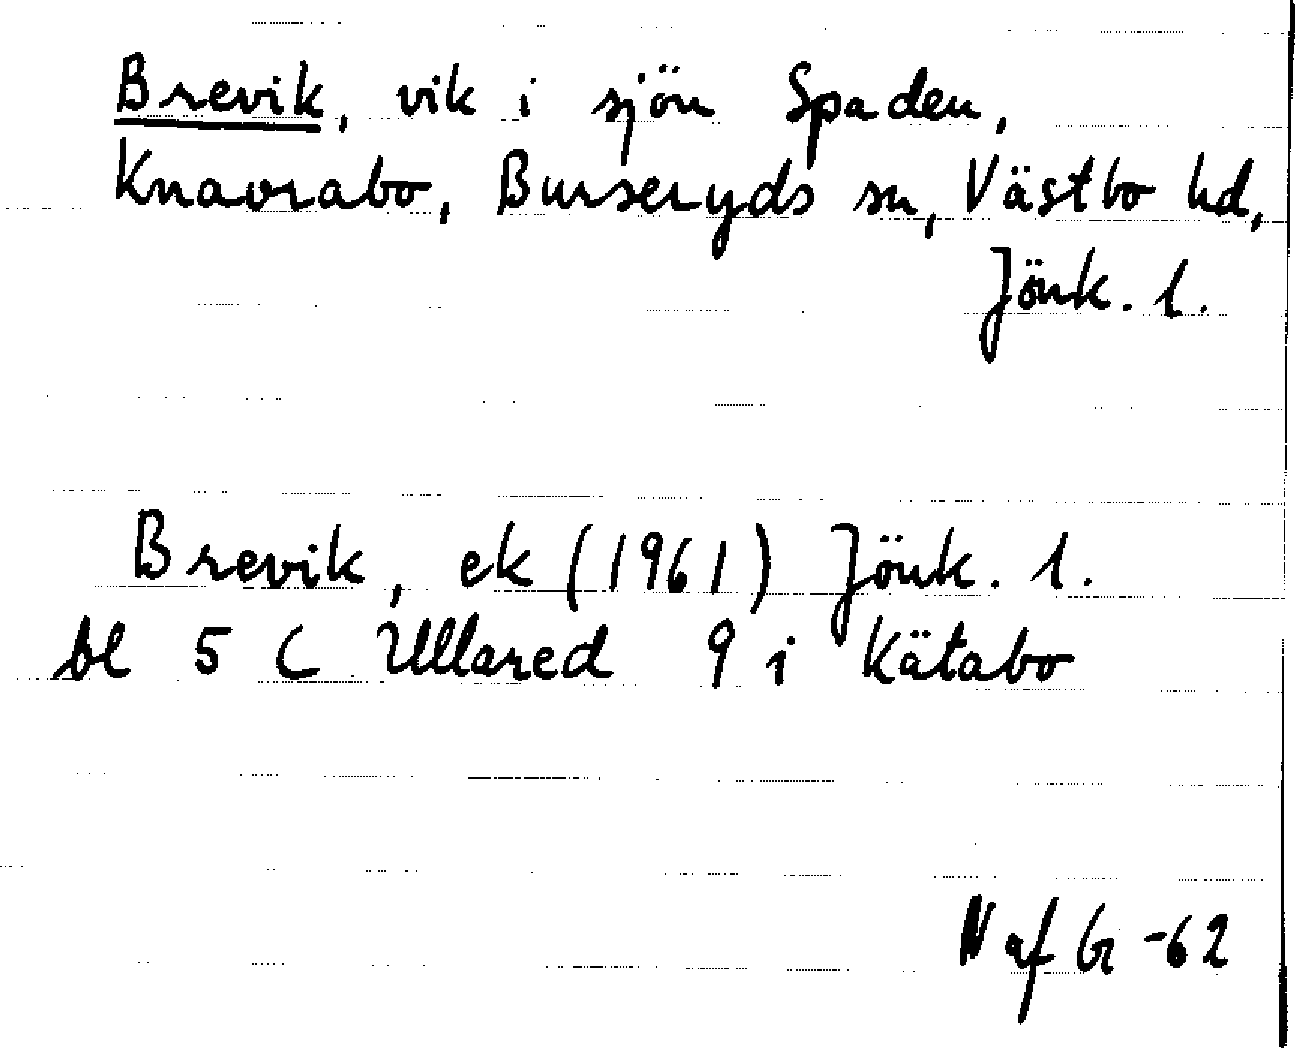 Brevik, vik i sjön Spaden,
Knavrabo, Burseryds sn, Västbo hd,
Jönk. l.
Brevik, ek (1961) Jönk. l.
bl 5 C Ullared 9 i Kätabo
N af G -62